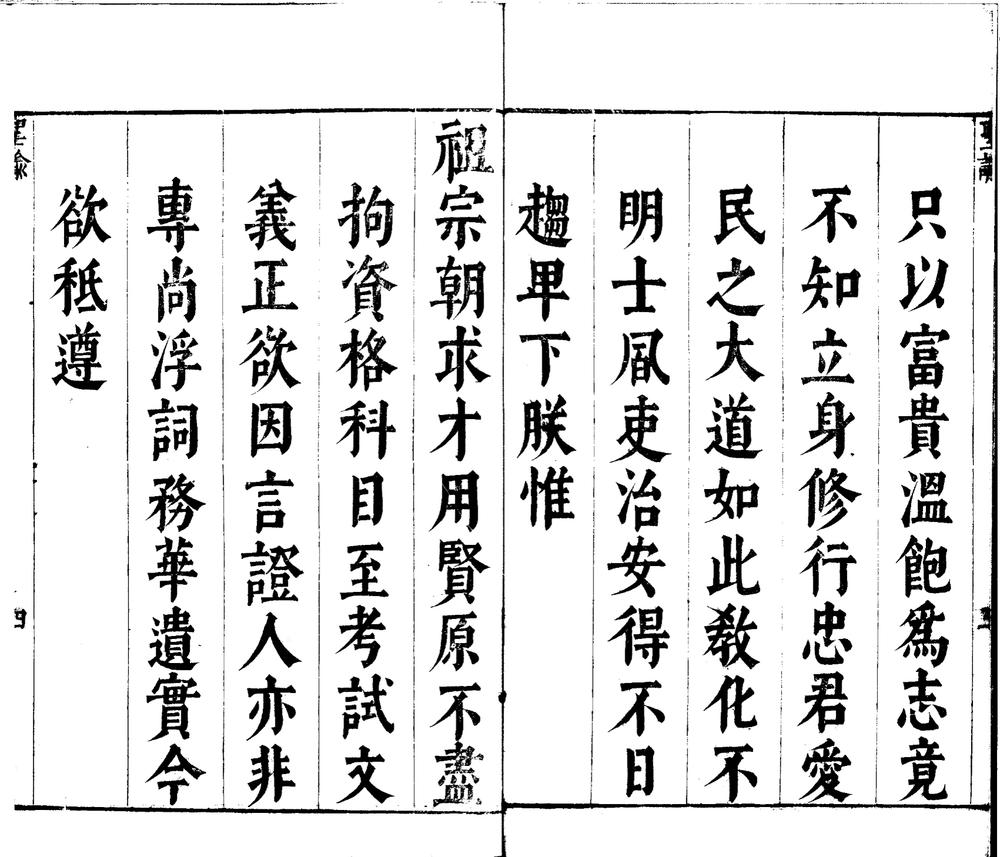 只以富貴溫飽爲志竟
不知立身修行忠君愛
民之大道如此教化不
明士風吏治安得不日
趨卑下朕惟
祖宗朝求才用賢原不盡
拘資格科目至考試文
義正欲因言證人亦非
專尚浮詞務華遺實今
欲秪遵
聖諭
四